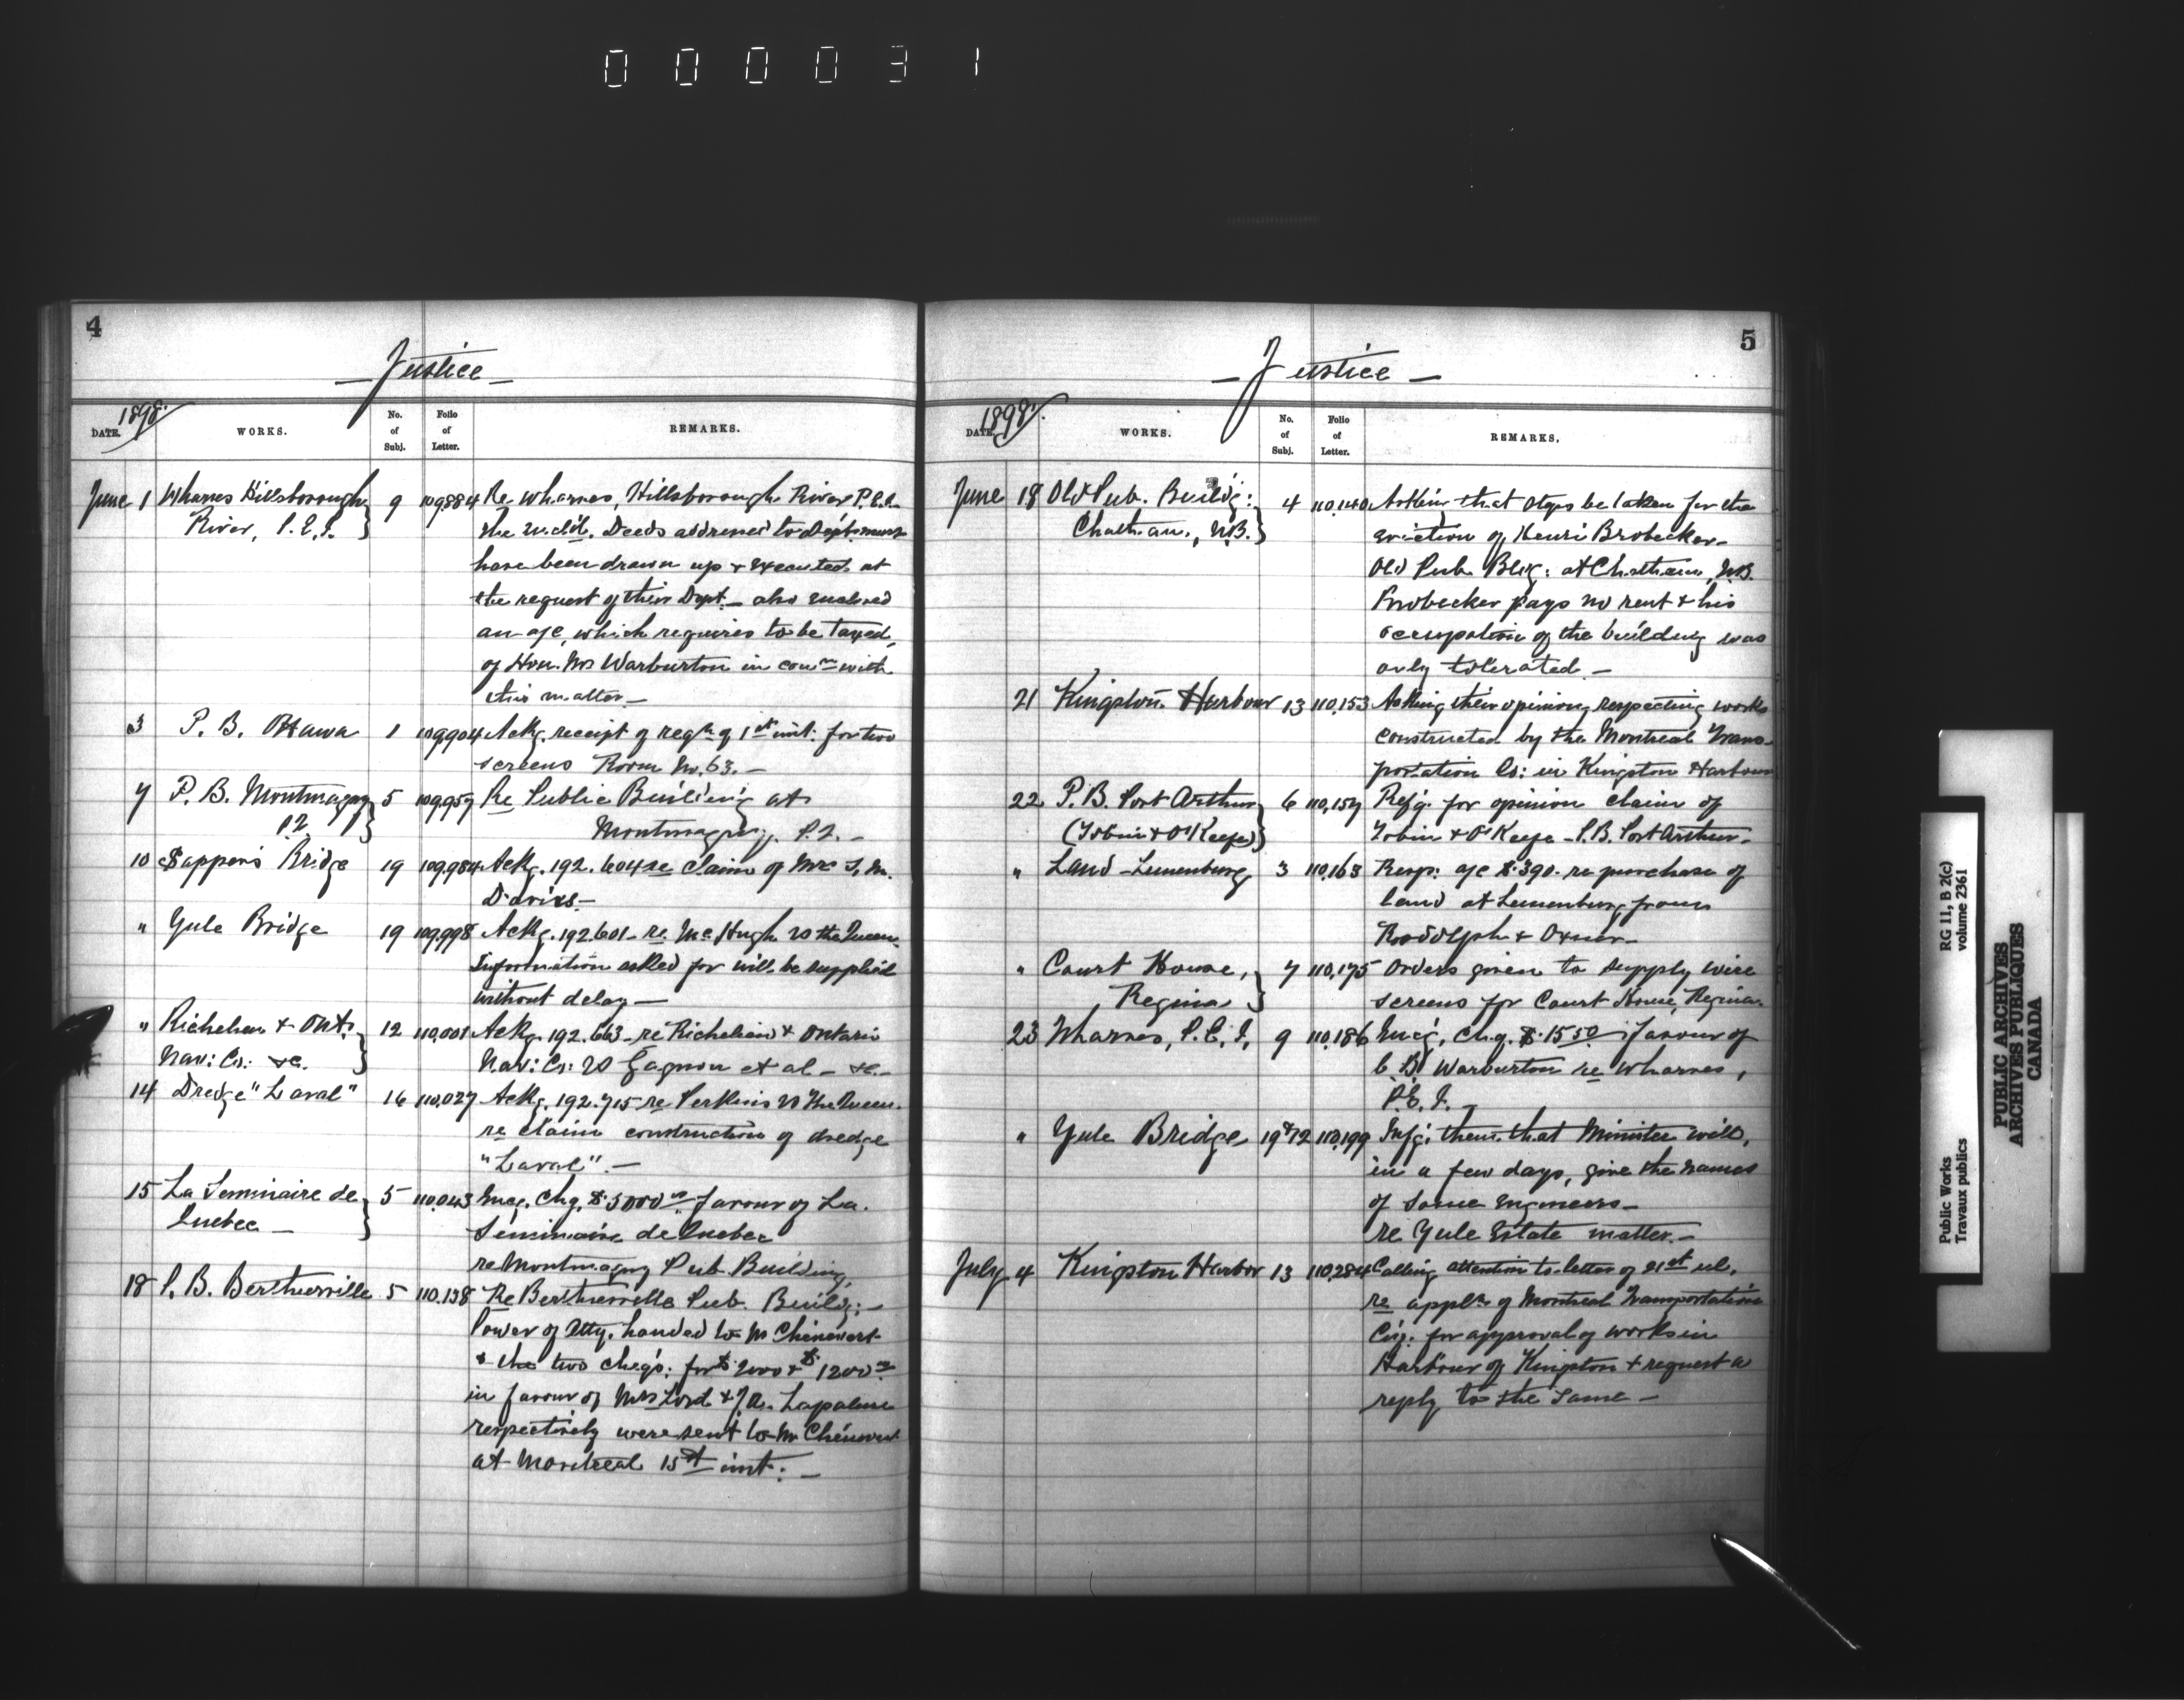 000031
4
Justice
1898.
DATE. WORKS. No. of Subj. Folio of Letter. REMARKS.
June 1 Wharves Hillsborough 9 109,884 Re wharves, Hillsborough River P.E.I.
River, P.E.I. the Deeds addressed to
have been drawn up & executed at
the request of their Dept. – also enclosed
an a/c, which requires to be taxed,
of Hon. Mr Warburton in conn with
this matter –
3 P. B. Ottawa 1 109,904 Ackg. receipt of reqn of 1st inst: for two
screens Room No. 63. –
7 P. B. Montmagny 5 109,959 Re Public Building at
P.Q. Montmagny, P.Q. –
10 Sappers Bridge 19 109,984 Ackg. 192.604 re claim of Mrs S. M.
Davies –
" Yule Bridge 19 109,998 Ackg. 192.601 – re McHugh vs the Queen.
Information asked for will be supplied
without delay –
" Richelieu & Ont. 12 110,001 Ackg. 192.663 – re Richelieu & Ontario
Nav: Co: &c. Nav: Co: vs Gagnon et al – &c. –
14 Dredge "Laval" 16 110,027 Ackg. 192.715 re Perkins vs The Queen.
re claim construction of dredge
"Laval". –
15 La Seminaire de 5 110,043 Encg. Chq. $ 5000 favour of La
Quebec – Séminaire de Quebec
re Montmagny Pub. Building.
18 P. B. Berthierville 5 110,138 Re Berthierville Pub. Buildg: –
Power of Atty. handed to Mr Chenevert
& the two cheqs: for $ 2000 & $ 1200
in favour of Mrs Lord & J. A. Lapalme
respectively were sent to Mr Chénevert
at Montreal 15th inst: –
5
Justice
1898.
DATE. WORKS. No. of Subj. Folio of Letter. REMARKS.
June 18 Old Pub. Buildg: 4 110,140 Asking that steps be taken for the
Chatham, N.B. eviction of Henri Brobecker –
Old Pub. Bldg: at Chatham, N.B.
Brobecker pays no rent & his
occupation of the building was
only tolerated –
21 Kingston Harbour 13 110,153 Asking their opinion respecting works
constructed by the Montreal Trans-
portation Co: in Kingston Harbour
22 P.B. Port Arthur 6 110,157 Refg. for opinion claim of
(Tobin & O'Keefe) Tobin & O'Keefe – P.B. Port Arthur –
" Land – Lunenburg 3 110,163 Resp: a/c $ 390. re purchase of
land at Lunenburg from
Roodolph & Oxner –
" Court House, 7 110,175 Orders given to supply wire
Regina screens for Court House, Regina.
23 Wharves, P.E.I. 9 110,186 Encg. Chq. $ 15 50 favour of
Warburton re wharves,
P.E.I. –
" Yule Bridge 19 & 12 110,199 Infg: them that Minister will,
in a few days, give the names
of some Engineers –
re Yule Estate matter. –
July 4 Kingston Harbor 13 110,284 Calling attention to letter of 21st ul.
re appln of Montreal Transportation
Coy. for approval of works in
Harbour of Kingston & request a
reply to the same –
Public Works RG 11, B 2(c)
Travaux publics volume 2361
PUBLIC ARCHIVES
ARCHIVES PUBLIQUES
CANADA